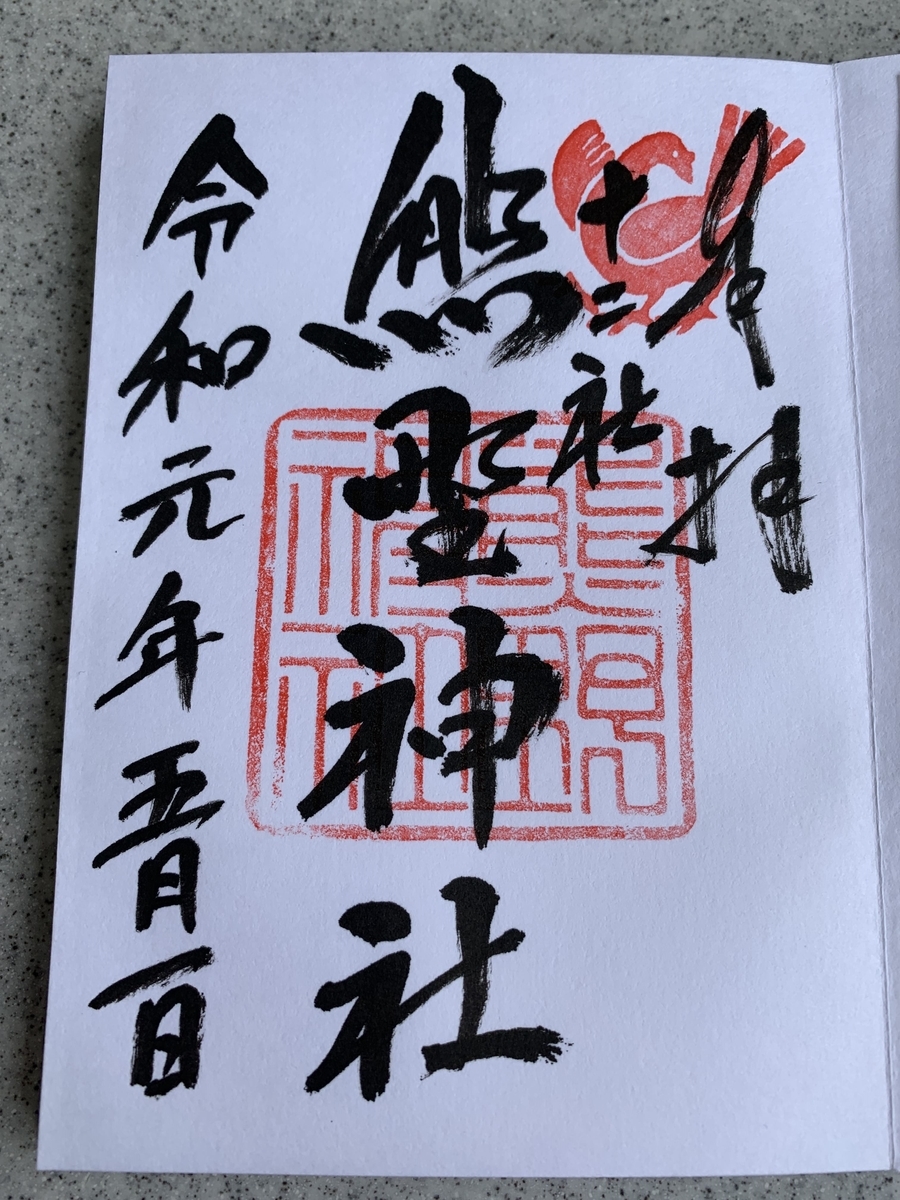 奉拝
十二社
熊野神社
令和元年五月一日